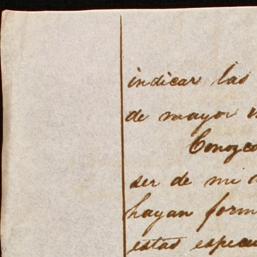 indicar las
de mayor
Conozco
ser de mi
hayan form
estas especu